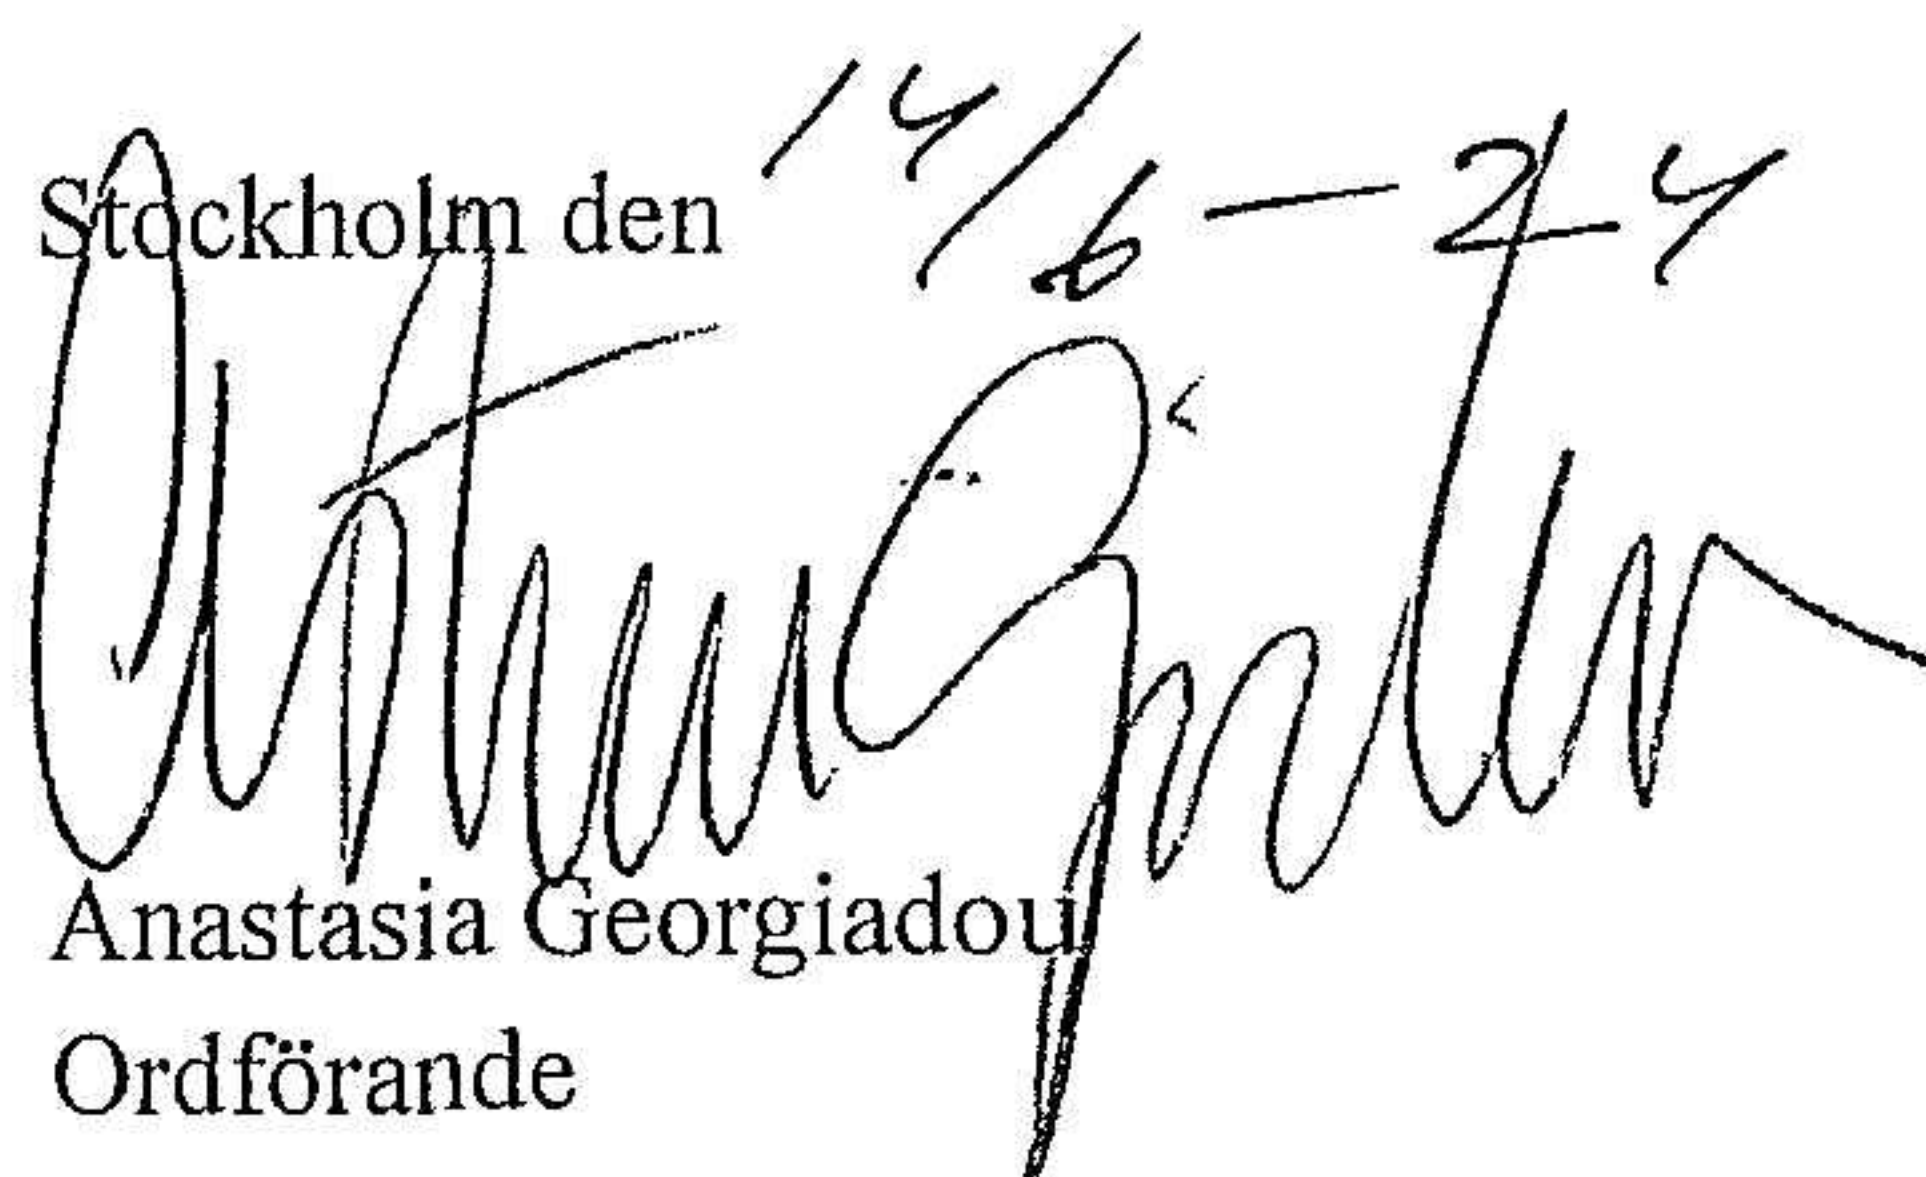 Stockholm den 14/6 — 24
Anastasia Georgiadou
Ordförande